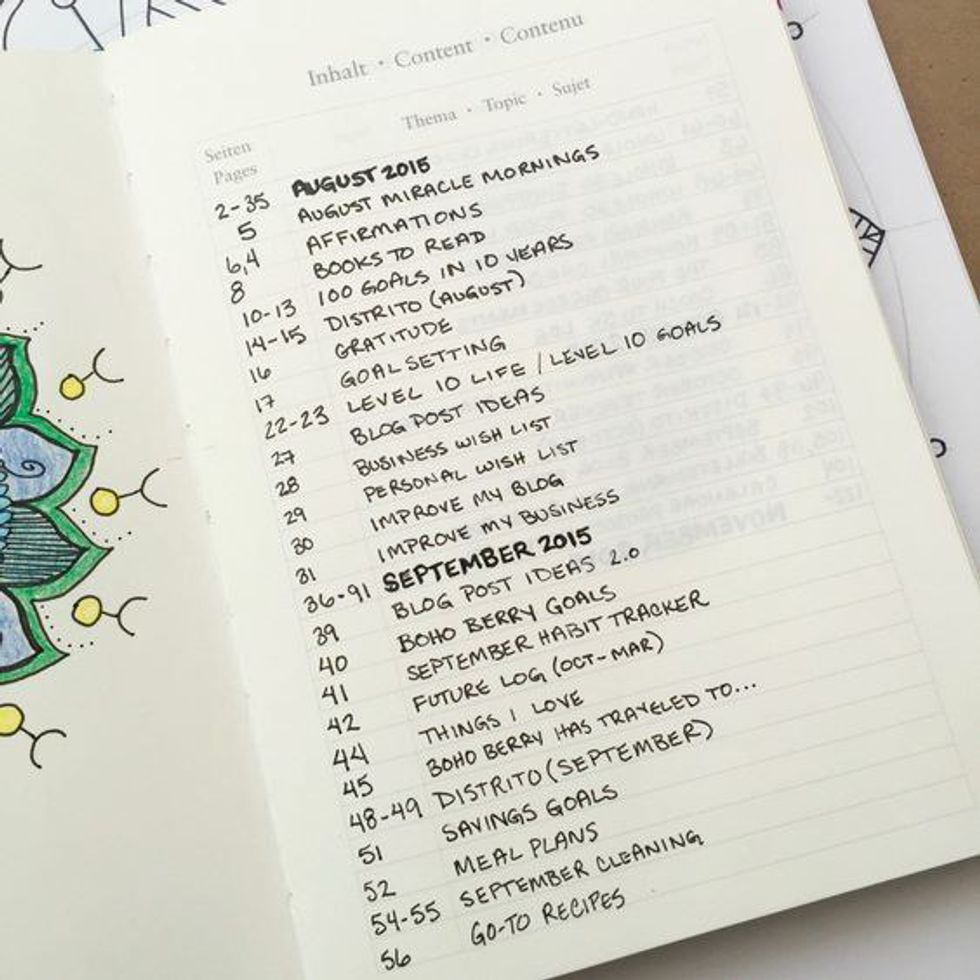 Inhalt · Content · Contenu
Seiten
Pages
Thema · Topic · Sujet
2-35 AUGUST 2015
5 AUGUST MIRACLE MORNINGS
6,4 AFFIRMATIONS
8 BOOKS TO READ
10-13 100 GOALS IN 10 YEARS
14-15 DISTRITO (AUGUST)
16 GRATITUDE
17 GOAL SETTING
22-23 LEVEL 10 LIFE / LEVEL 10 GOALS
27 BLOG POST IDEAS
28 BUSINESS WISH LIST
29 PERSONAL WISH LIST
30 IMPROVE MY BLOG
31 IMPROVE MY BUSINESS
36-91 SEPTEMBER 2015
39 BLOG POST IDEAS 2.0
40 BOHO BERRY GOALS
41 SEPTEMBER HABIT TRACKER
42 FUTURE LOG (OCT-MAR)
44 THINGS I LOVE
45 BOHO BERRY HAS TRAVELED TO...
48-49 DISTRITO (SEPTEMBER)
51 SAVINGS GOALS
52 MEAL PLANS
54-55 SEPTEMBER CLEANING
56 GO-TO RECIPES